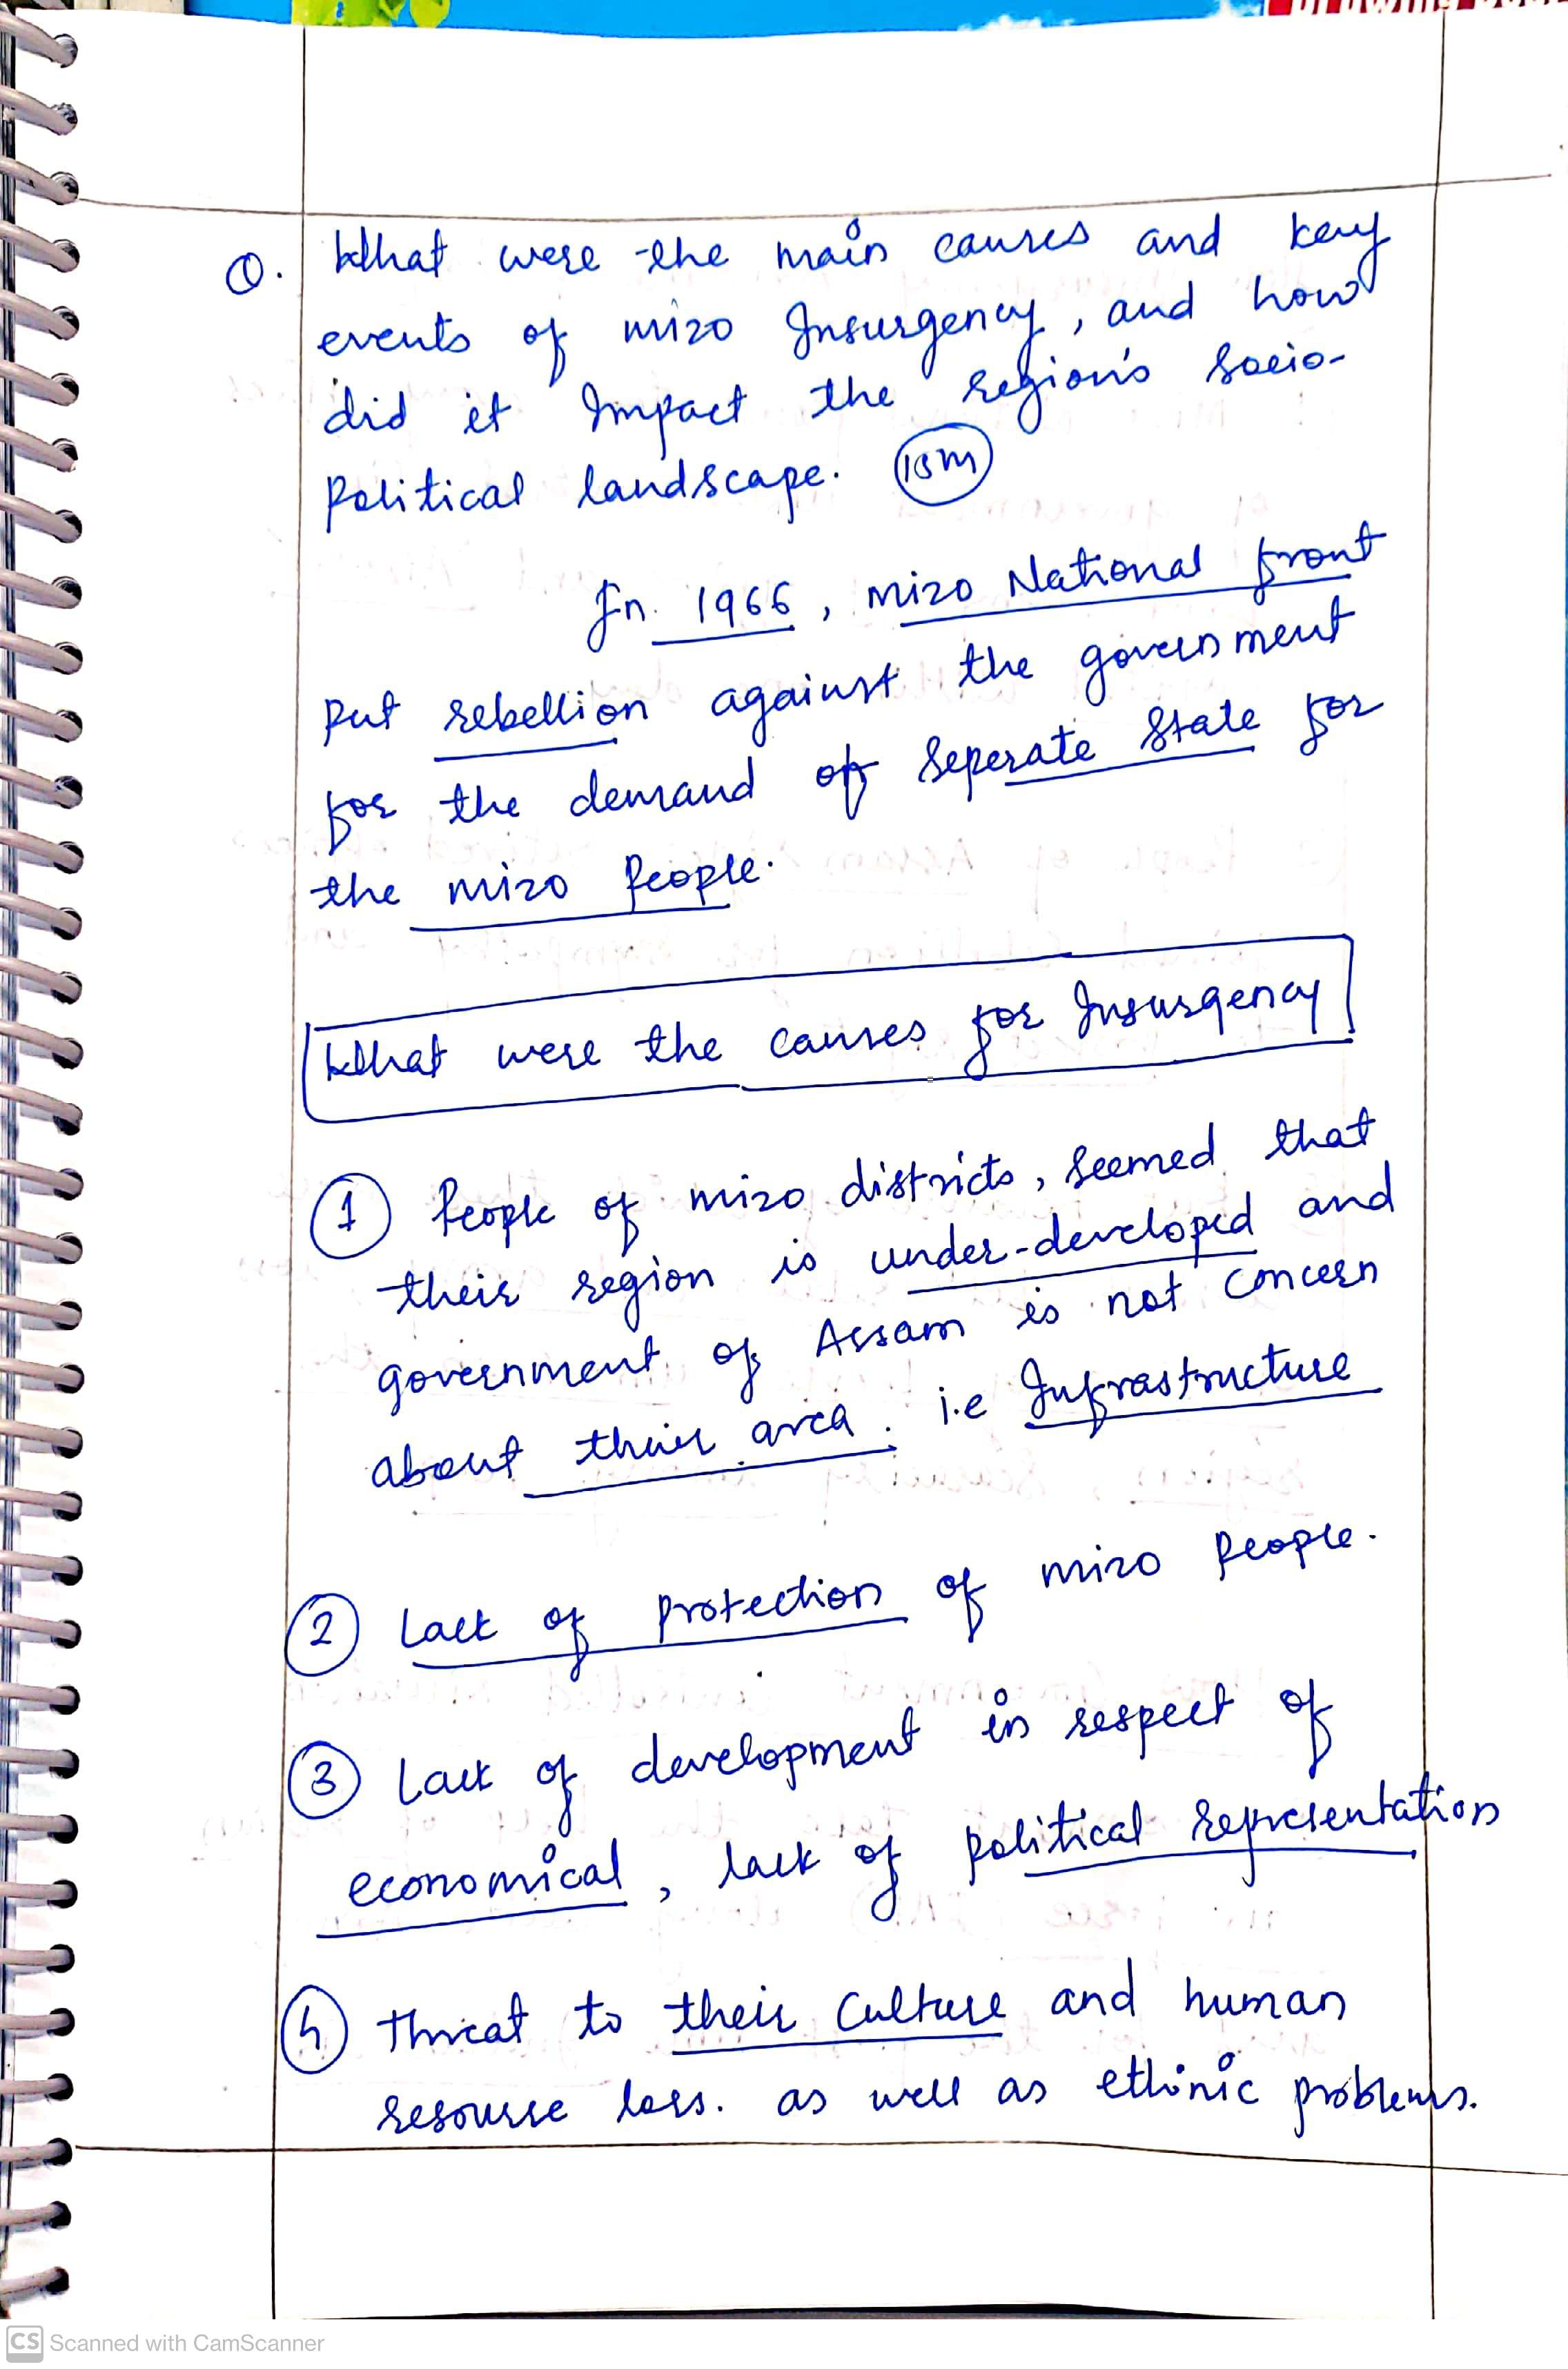 Q. What were the main causes and key
events of mizo Insurgency, and how
did it Impact the region's Socio-
Political landscape. 15m
In 1966, mizo National front
put rebellion against the government
for the demand of Seperate State for
the mizo People.
What were the causes for Insurgency
1 People of mizo districts, seemed that
their region is under-developed and
government of Assam is not concern
about their area. i.e Infrastructure
2 Lack of protection of mizo People.
3 Lack of development in respect of
economical, lack of political representation
4 threat to their Culture and human
resourse loss. as well as ethinic problems.
CS Scanned with CamScanner